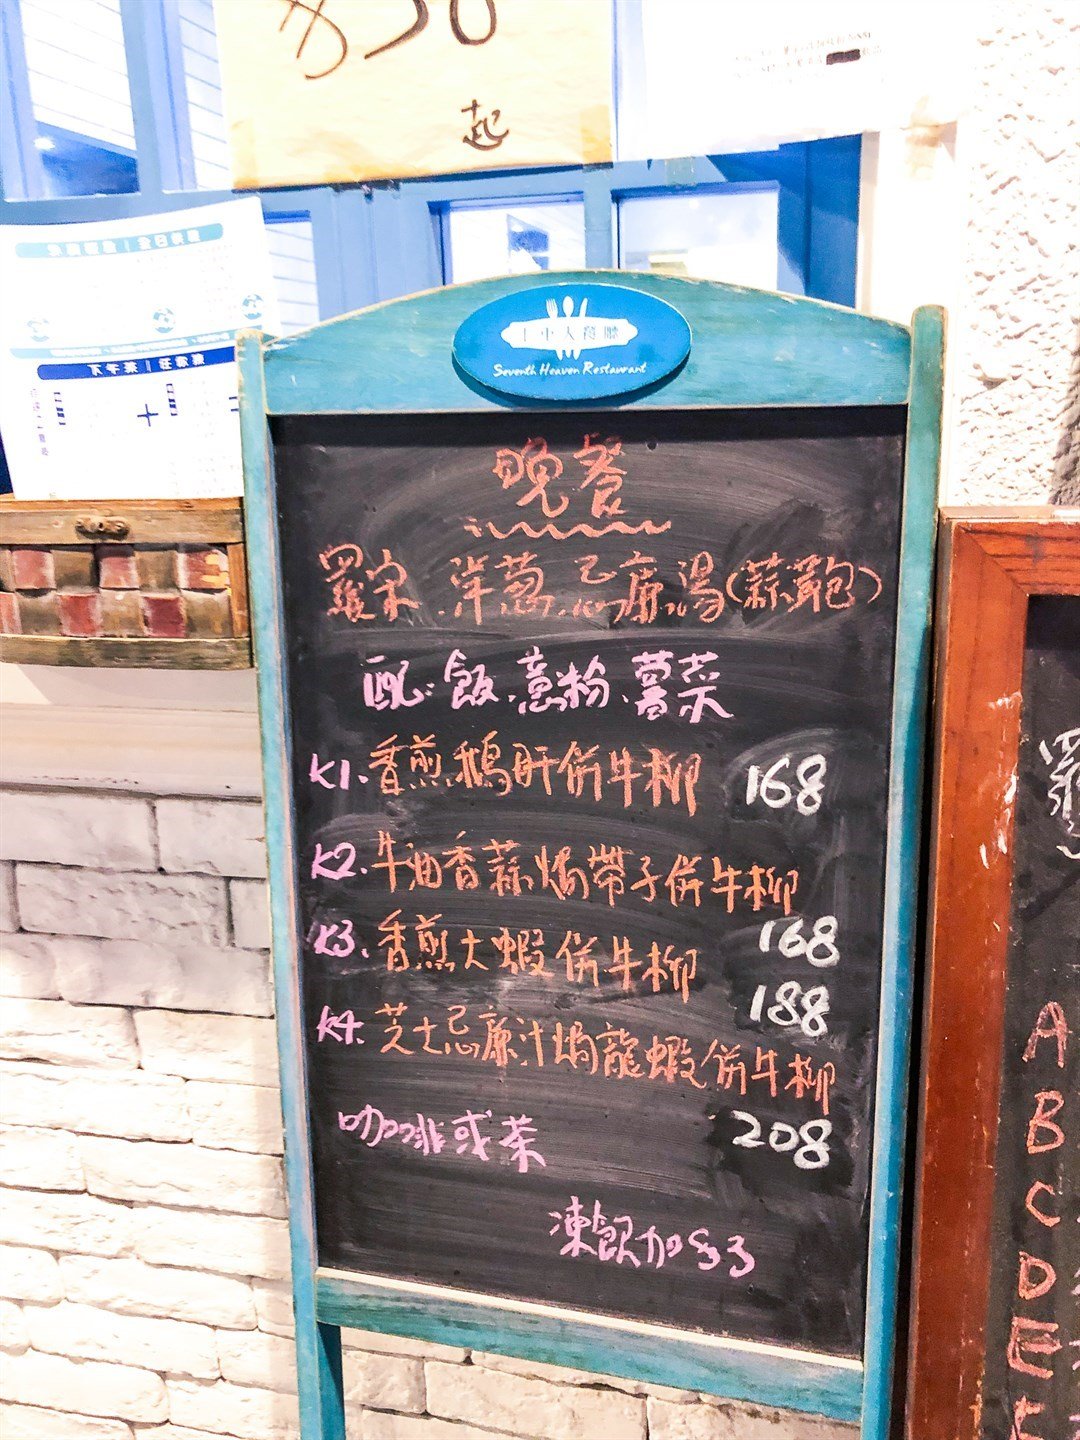 $50
起
下午茶
Seventh Heaven Restaurant
晚餐
羅宋、洋葱、忌廉湯(蒜蓉包)
配:飯、意粉、薯菜
K1.香煎鵝肝併牛柳 168
K2.牛油香蒜焗帶子併牛柳
168
K3.香煎大蝦併牛柳
188
K4.芝士忌廉汁焗龍蝦併牛柳
208
咖啡或茶
凍飲加$3
羅
A
B
C
D
E